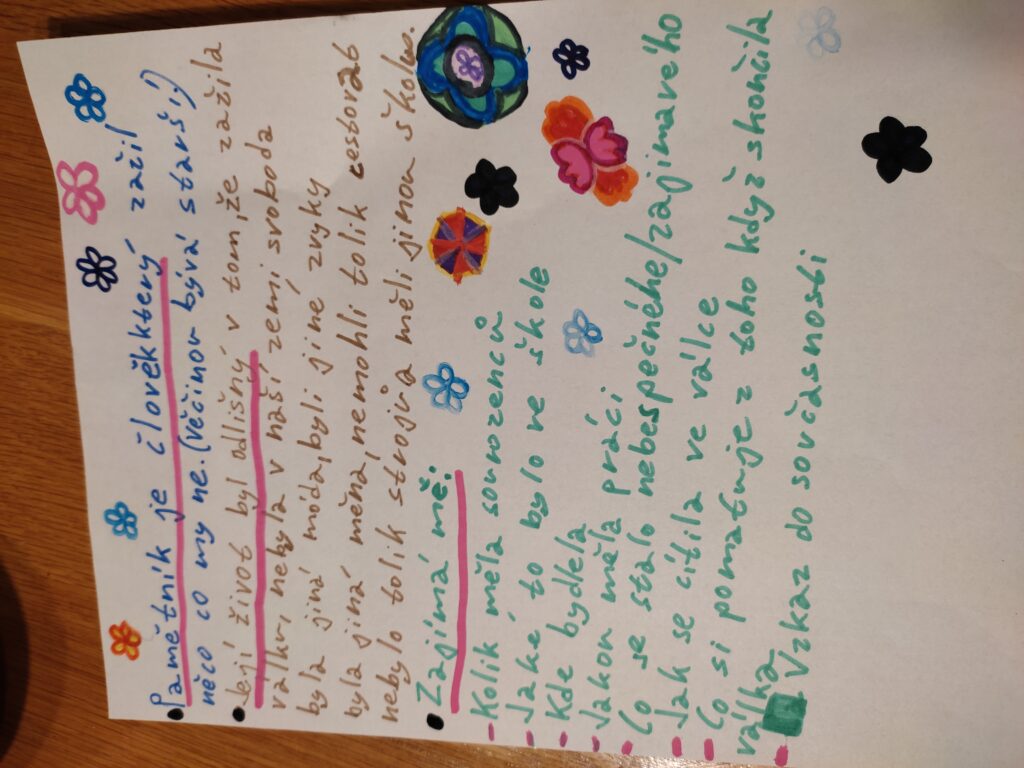 • Pamětník je člověk který zažil
něco co my ne. (věčinou bývá starší.)
• Její život byl odlišný v tom, že zažila
válku, nebyla v naší zemi svoboda
byla jiná móda, byli jiné zvyky
byla jiná měna, nemohli tolik cestovat
nebylo tolik strojů a měli jinou školu.
• Zajímá mě:
- Kolik měla sourozenců
- Jaké to bylo ve škole
- Kde bydlela
- Jakou měla práci
- Co se stalo nebespečného/zajímavého
- Jak se cítila ve válce
- Co si pomatuje z toho když skončila
válka
- Vzkaz do současnosti